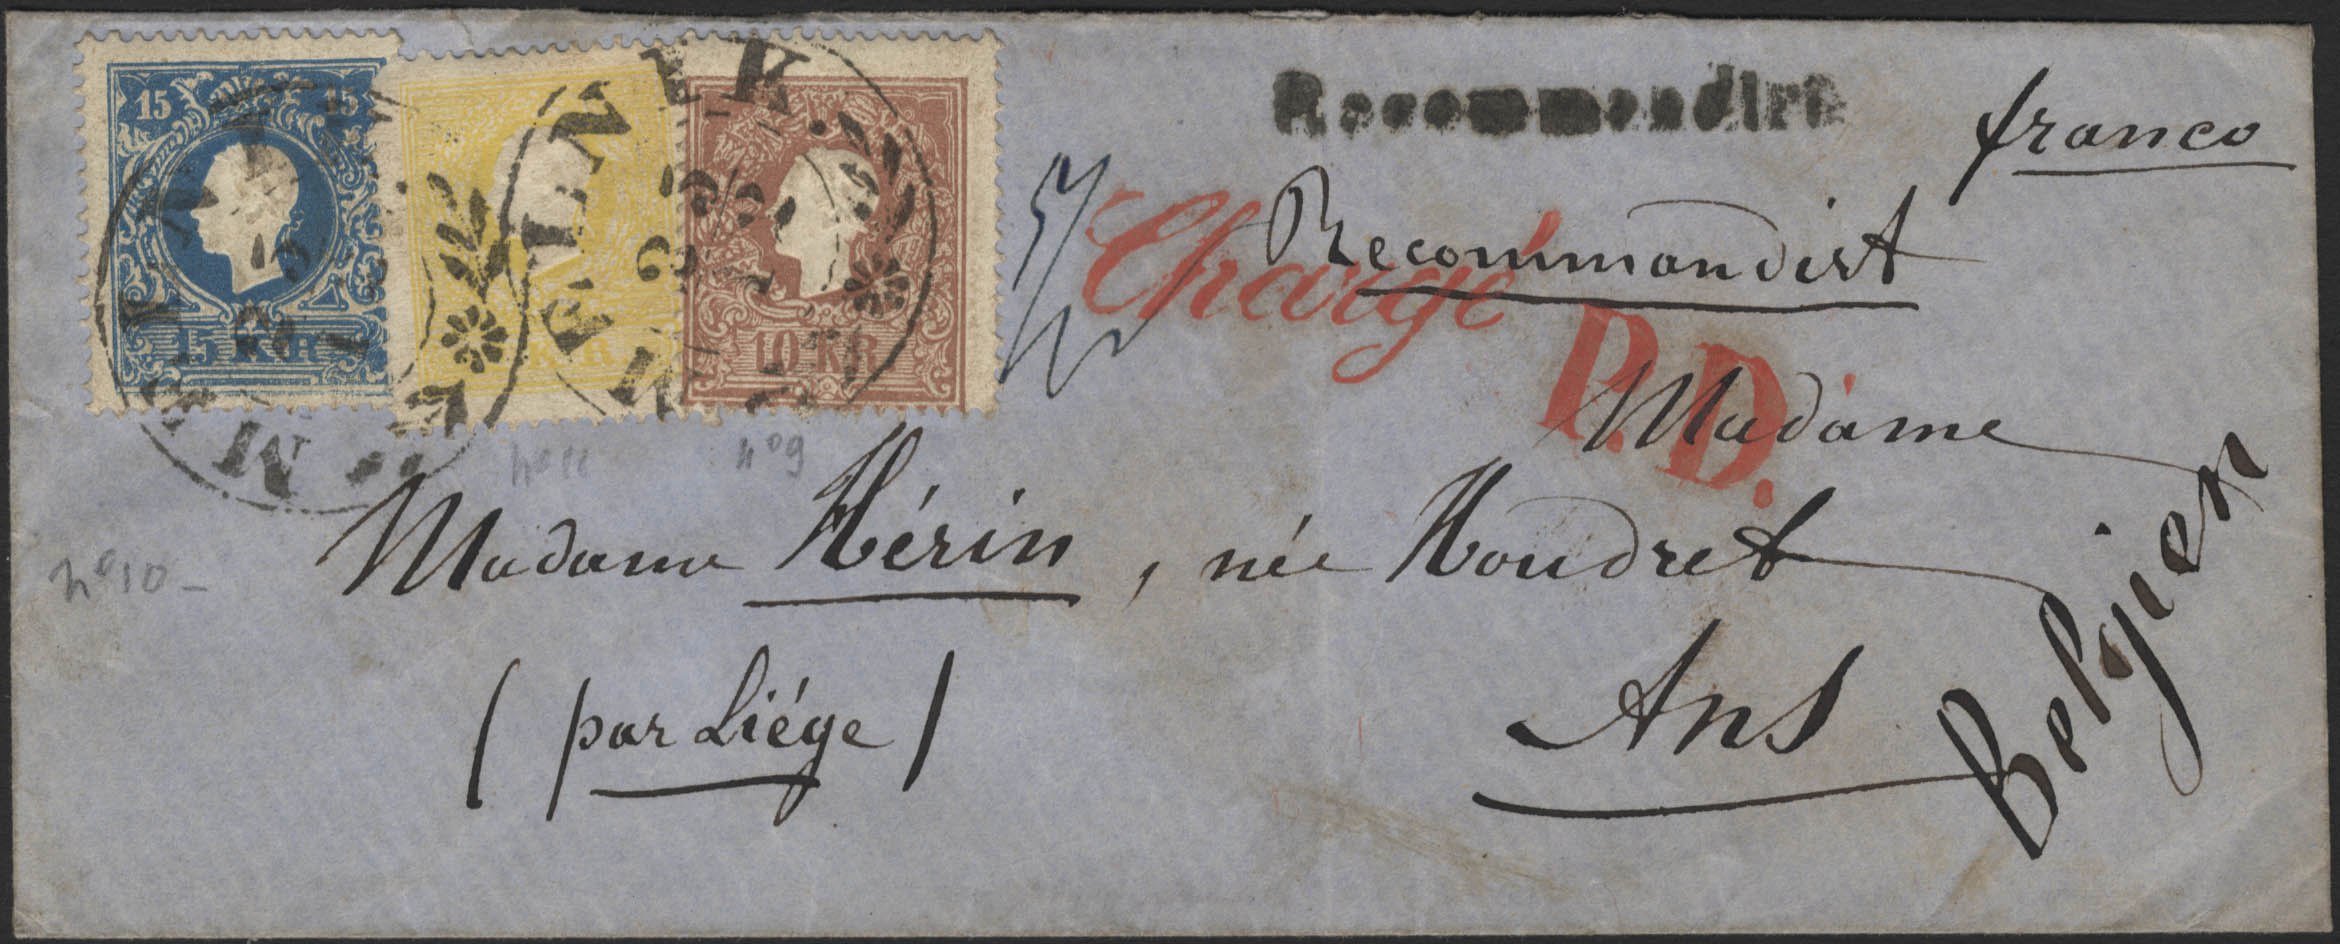 15 15
15 KR
KR
10 KR
FÜNFKIRCHEN
Recommandirt
franco
Recommandirt
Chargé
P.D.
Madame
Madame Hérin, née Houdret
Ans
(par Liége)
Belgien
n° 11
n° 9
n° 10 -